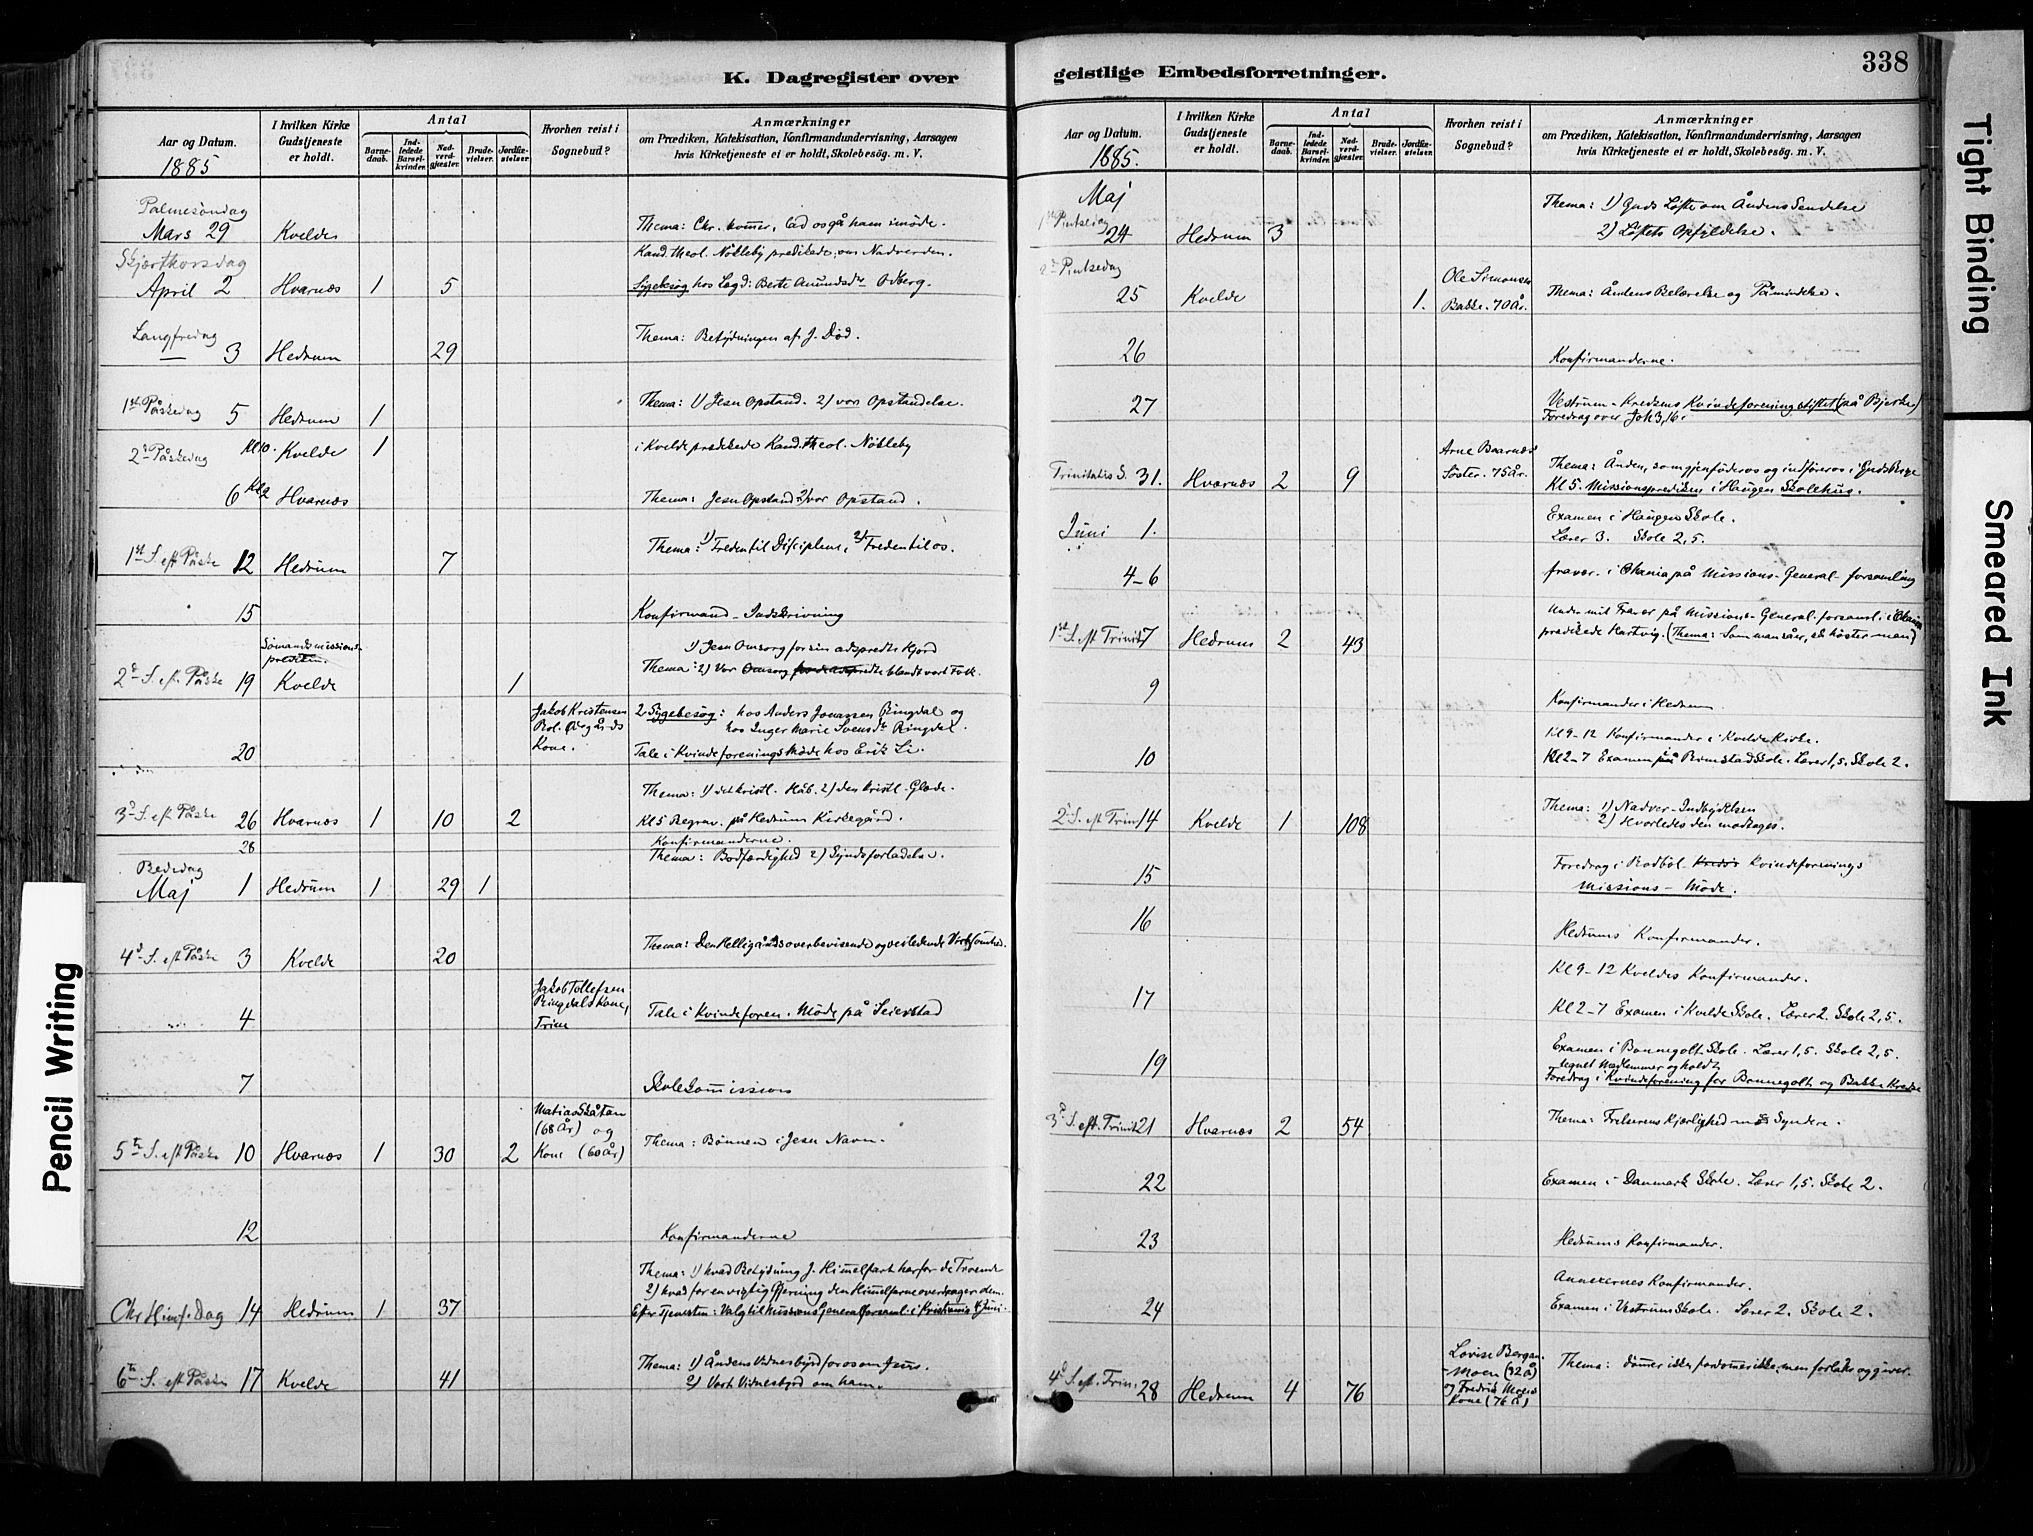 338
K. Dagregister over geistlige Embedsforretninger.
Aar og Datum.
I hvilken Kirke Gudstjeneste er holdt.
Antal
Barnedaab.
Indledede Barselkvinder.
Nadverdgjester.
Brudevielser.
Jordfæstelser.
Hvorhen reist i Sognebud?
Anmærkninger
om Prædiken, Katekisation, Konfirmandundervisning, Aarsagen
hvis Kirketjeneste ei er holdt, Skolebesög. m. V.
1885
Palmesöndag
Mars 29 Kvelde Thema: Chr. kommer, lad os gå ham imöde.
Skjærthorsdag Kand. theol. Nökleby predikede om Nadverden.
April 2 Hvarnæs 1 5 Sygebesög hos Lægd: Berte Amundsdr Odberg.
Langfredag
— 3 Hedrum 29 Thema: Betydningen af J. Död.
1st Påskedag 5 Hedrum 1 Thema: 1) Jesu Opstand. 2) vor Opstandelse.
2d Påskedag Kl 10. Kvelde 1 i Kvelde predikede Kand. theol. Nökleby
6 Kl 2 Hvarnæs Thema: Jesu Opstand 2) vor Opstand.
1st S. eft Påske 12 Hedrum 7 Thema: 1) Freden til Disciplene, 2) Freden til os.
15 Konfirmand-Indskrivning
Sömandsmissions-
prediken. 1) Jesu Omsorg for sin adspredte Hjord
2d S. eft. Påske 19 Kvelde 1 Thema: 2) Vor Omsorg for de adspredte blandt vort Folk.
Jakob Kristensen 2 Sygebesög: hos Anders Jonassen Ringdal og
hos Inger Marie Svensdr Ringdal.
20 Kone. Tale i Kvindeforenings Möde hos Erik Li.
Thema: 1) det kristl. Håb. 2) den kristl. Glæde.
3d S. eft Påske 26 Hvarnæs 1 10 2 Kl 5 Begrav. på Hedrum Kirkegård.
28 Konfirmanderne.
Bededag Thema: Bodfærdighed 2) Syndsforladelse.
Maj 1 Hedrum 1 29 1
4d S. eft Påske 3 Kvelde 20 Thema: Den Helligånds overbevisende og veiledende Virksomhed.
Jakob Tollefsen
Ringdals Kone,
4 Trine Tale i Kvindeforen. Möde på Seierstad
7 Skolekommission
Matias Skåtan
(68 År) og
5te S. eft Påske 10 Hvarnæs 1 30 2 Kone (60 År) Thema: Bönnen i Jesu Navn.
12 Konfirmanderne
Thema: 1) hvad Betydning J. Himmelfart har for de Troende
2) hvad for en vigtig Gjerning den Himmelfarne overdrager dem.
Chr Himf. Dag 14 Hedrum 1 37 Efter Tjenesten: Valg til Missions Generalforsaml. i Kristiania 4 Juni.
6te S. eft Påske 17 Kvelde 41 Thema: 1) Åndens Vidnesbyrd for os om Jesus.
2) Vort Vidnesbyrd om ham.
Aar og Datum.
I hvilken Kirke Gudstjeneste er holdt.
Antal
Barnedaab.
Indledede Barselkvinder.
Nadverdgjester.
Brudevielser.
Jordfæstelser.
Hvorhen reist i Sognebud?
Anmærkninger
om Prædiken, Katekisation, Konfirmandundervisning, Aarsagen
hvis Kirketjeneste ei er holdt, Skolebesög. m. V.
1885.
Maj Thema: 1) Guds Löfte om Åndens Sendelse
1st Pintsedag 24 Hedrum 3 2) Löftets Opfyldelse.
2d Pintsedag
25 Kvelde 1. Ole Simonsen Bakke. 70 År. Thema: Åndens Belærelse og Påmindelse.
26 Konfirmanderne.
27 Vestrum-Kredsens Kvindeforening stiftet (på Bjerke)
Foredrag over Joh 3,16.
Arne Baarnæs
Trinitatis S. 31. Hvarnæs 2 9 Söster. 75 år. Thema: Ånden, som gjenföder os og indförer os i Guds Rige
Kl 5. Missionsprediken i Haugen Skolehus.
Juni 1. Examen i Haugen Skole.
Lærer 3. Skole 2,5.
4-6 fravær. i Chania på Missions-General-forsamling
Under mit Fravær på Missions-General forsaml. i Chania
1st S. eft Trinit 7 Hedrum 2 43 predikede Hartvig. (Thema: Som man sår, så höster man)
9 Konfirmander i Hedrum
Kl 9-12 Konfirmander i Kvelde Kirke.
10 Kl 2-7 Examen på Rimstad Skole. Lærer 1,5. Skole 2.
2d S. eft Trin 14 Kvelde 1 108 Thema: 1) Nadver-Indbydelsen
2) Hvorledes den modtages.
15 Foredrag i Rødböl-Kreds's Kvindeforenings
Missions-Möde.
16 Hedrums Konfirmander.
Kl 9-12 Kveldes Konfirmander.
17 Kl 2-7 Examen i Kvelde Skole. Lærer 2. Skole 2,5.
19 Examen i Bonnegolt Skole. Lærer 1,5. Skole 2,5.
tegnet Medlemmer og holdt
Foredrag i Kvindeforening for Bonnegolt og Bakke Kredse
3d S. eft. Trinit 21 Hvarnæs 2 54 Thema: Frelserens Kjærlighed mod Syndere.
22 Examen i Danmark Skole. Lærer 1,5. Skole 2.
23 Hedrums Konfirmander.
Annexernes Konfirmander.
24 Examen i Vestrum Skole. Lærer 2. Skole 2.
Lovise Bergan-
Moen (32 å)
4d S. eft. Trin. 28 Hedrum 4 76 og Fredrik Moens Thema: dömer ikke fordömer ikke men forlater og giver.
Kone (76 å)
Tight Binding
Smeared Ink
Pencil Writing